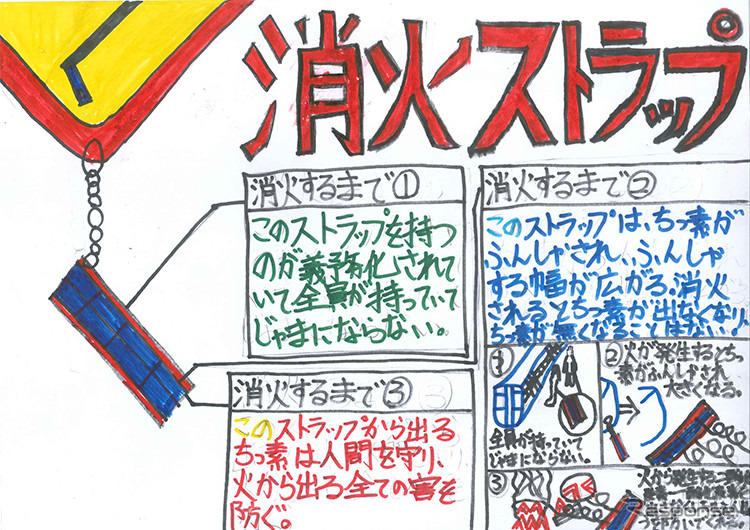 消火ストラップ
消火するまで①
このストラップを持つ
のが義務化されて
いて全員が持っていて
じゃまにならない。
消火するまで②
このストラップは、ちっ素が
ふんしゃされ、ふんしゃ
する幅が広がる。消火
されるとちっ素が出なくなり、
ちっ素が無くなることはない。
①
全員が持っていて
じゃまにならない。
②火が発生するとちっ
素がふんしゃされ
大きくなる。
③
火から発生する
消火するまで③
このストラップから出る
ちっ素は人間を守り、
火から出る全ての害を
防ぐ。
Response